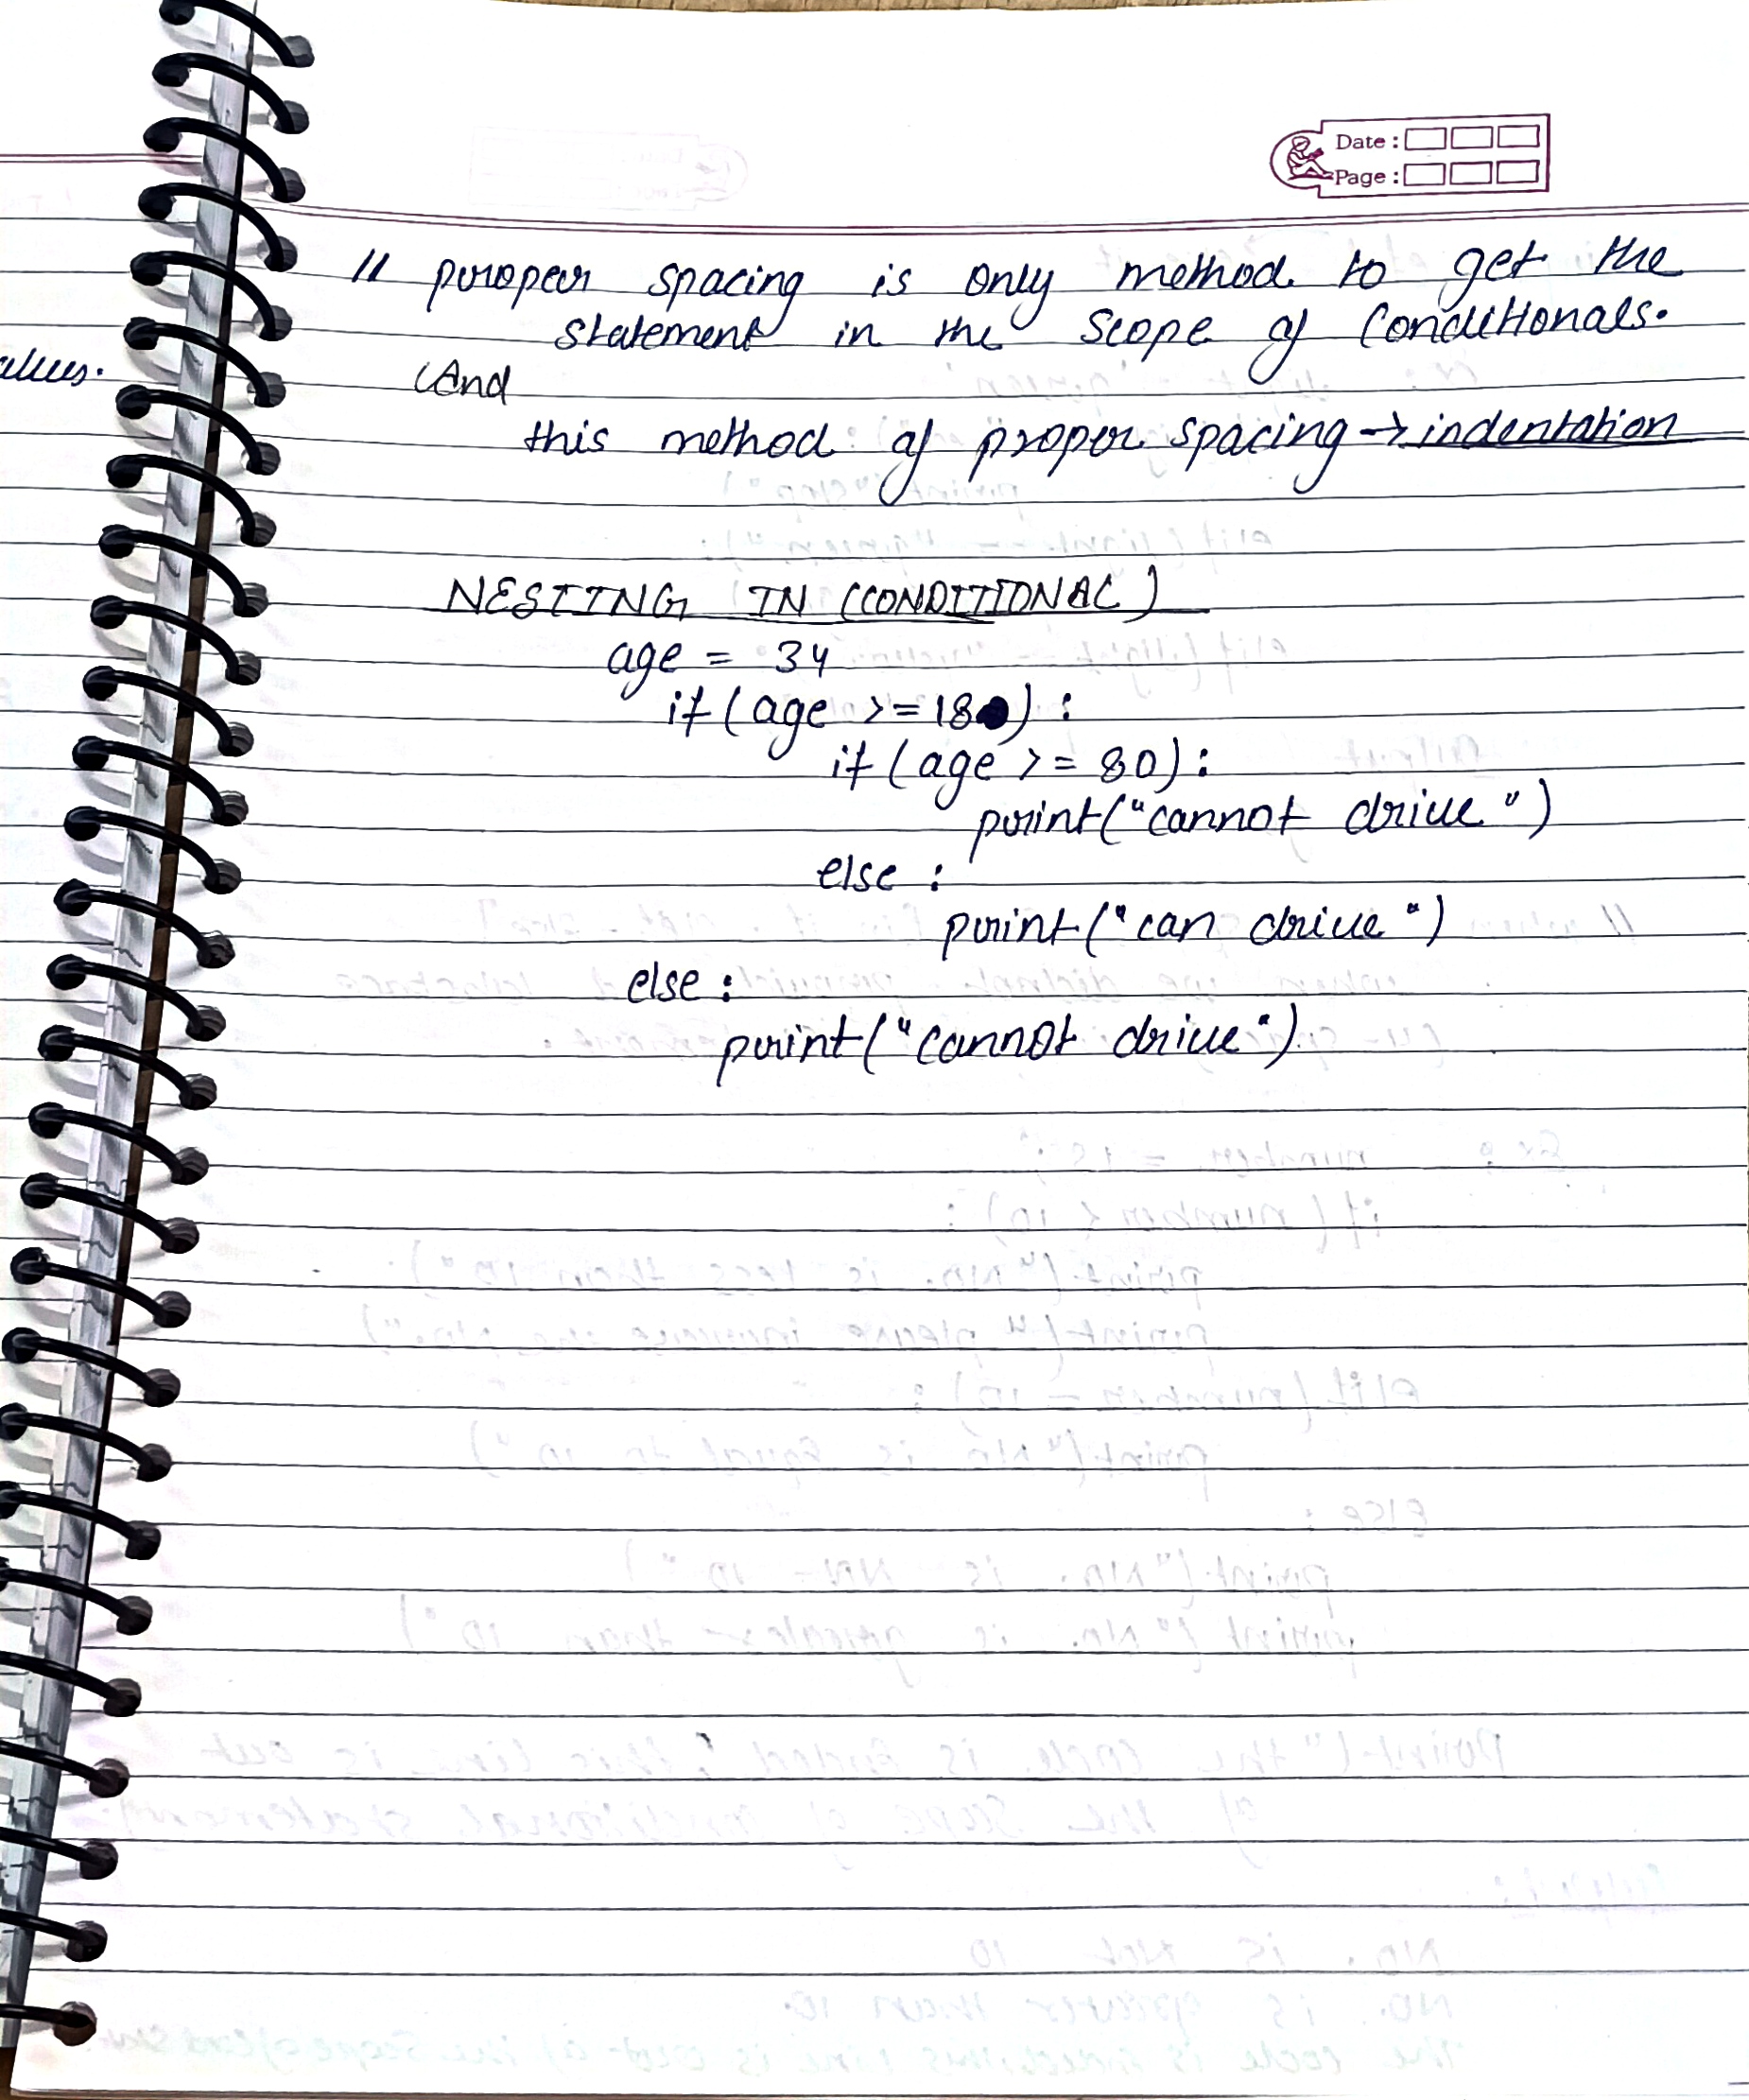 Date :
Page :
// proper spacing is only method to get the
statement in the scope of conditionals.
And
this method of proper spacing → indentation
NESTING IN (CONDITIONAL)
age = 34
if (age >= 18) :
if (age >= 80) :
print("cannot drive")
else :
print("can drive")
else :
print("cannot drive")